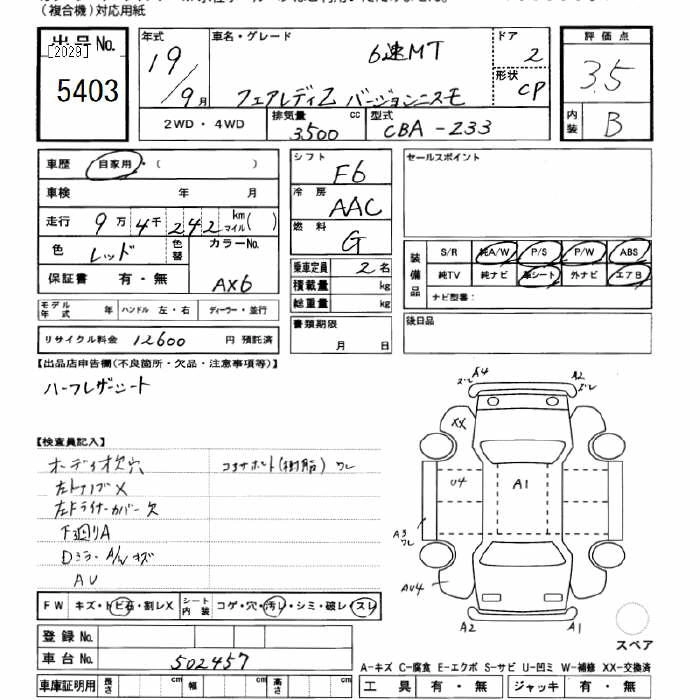 (複合機)対応用紙
出品No.
[2029]
5403
年式 19/9月
車名・グレード 6速MT
フェアレディZ バージョンニスモ
ドア 2
形状 CP
評価点 3.5
内装 B
2WD・4WD
排気量 3500 cc
型式 CBA-Z33
車歴 自家用・( )
車検 年 月
走行 9万4千242 km マイル( )
色 レッド 色替 カラーNo. AX6
保証書 有・無
モデル年式 年 ハンドル 左・右 ディーラー・並行
リサイクル料金 12600 円 預託済
シフト F6
冷房 AAC
燃料 G
乗車定員 2名
積載量 kg
総重量 kg
書類期限 月 日
セールスポイント
装備品 S/R 純A/W P/S P/W ABS
純TV 純ナビ 革シート 外ナビ エアB
ナビ型番:
後日品
【出品店申告欄(不良箇所・欠品・注意事項等)】
ハーフレザーシート
【検査員記入】
オーディオ欠穴
コアサポート(樹脂)ワレ
左ドライナーカバー欠
下廻りA
Dミラー A/W キズ
AU
A4 ズレ
A2 ズレ
XX
U4
A1
A3 ワレ
AU4
A2
A1
スペア
FW キズ・トビ石・割レX シート内装 コゲ・穴・汚レ・シミ・破レ・スレ
登録No.
車台No. 502457
車庫証明用 長さ cm 幅 cm 高さ cm
A-キズ C-腐食 E-エクボ S-サビ U-凹ミ W-補修 XX-交換済
工具 有・無 ジャッキ 有・無